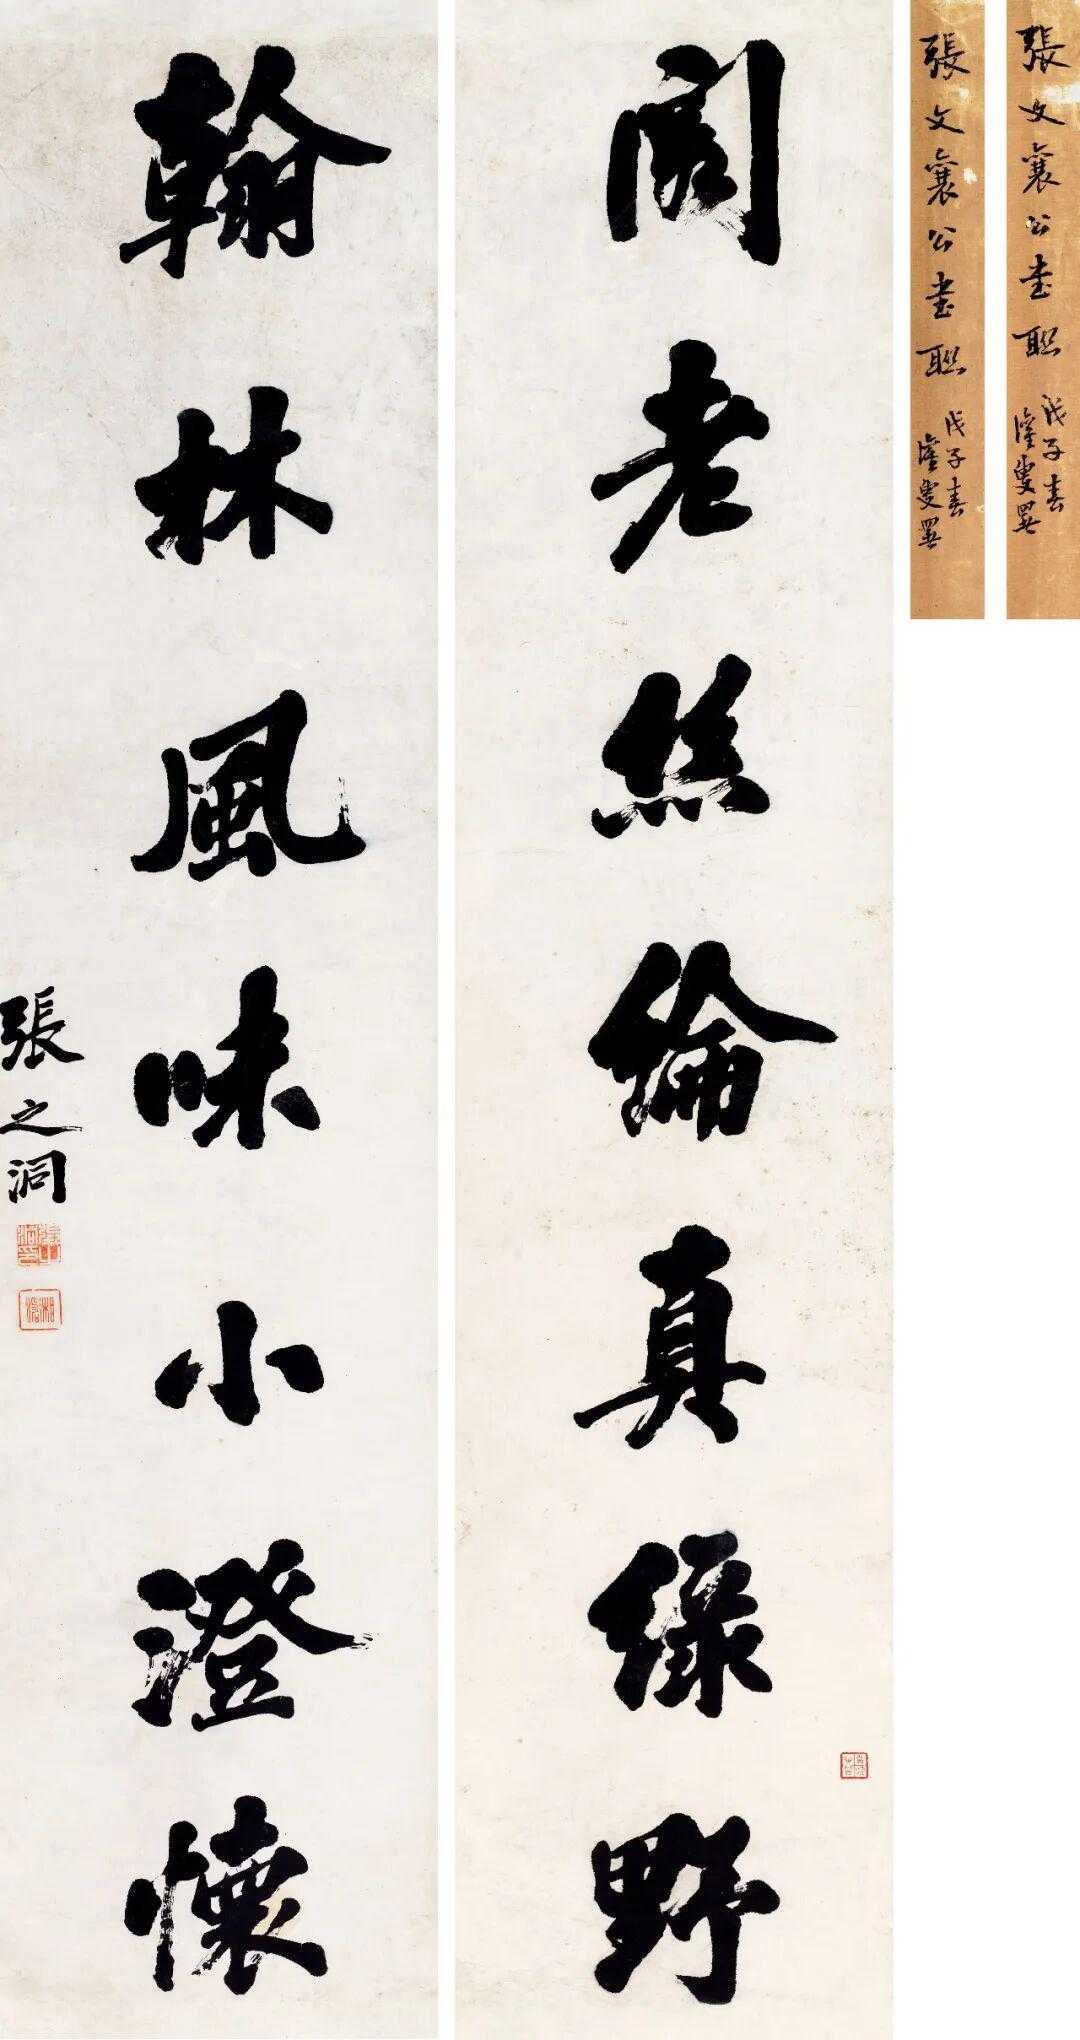 張文襄公書聯
戊子春
張文襄公書聯
戊子春
閣老絲綸真綠野
翰林風味小澄懷
張之洞